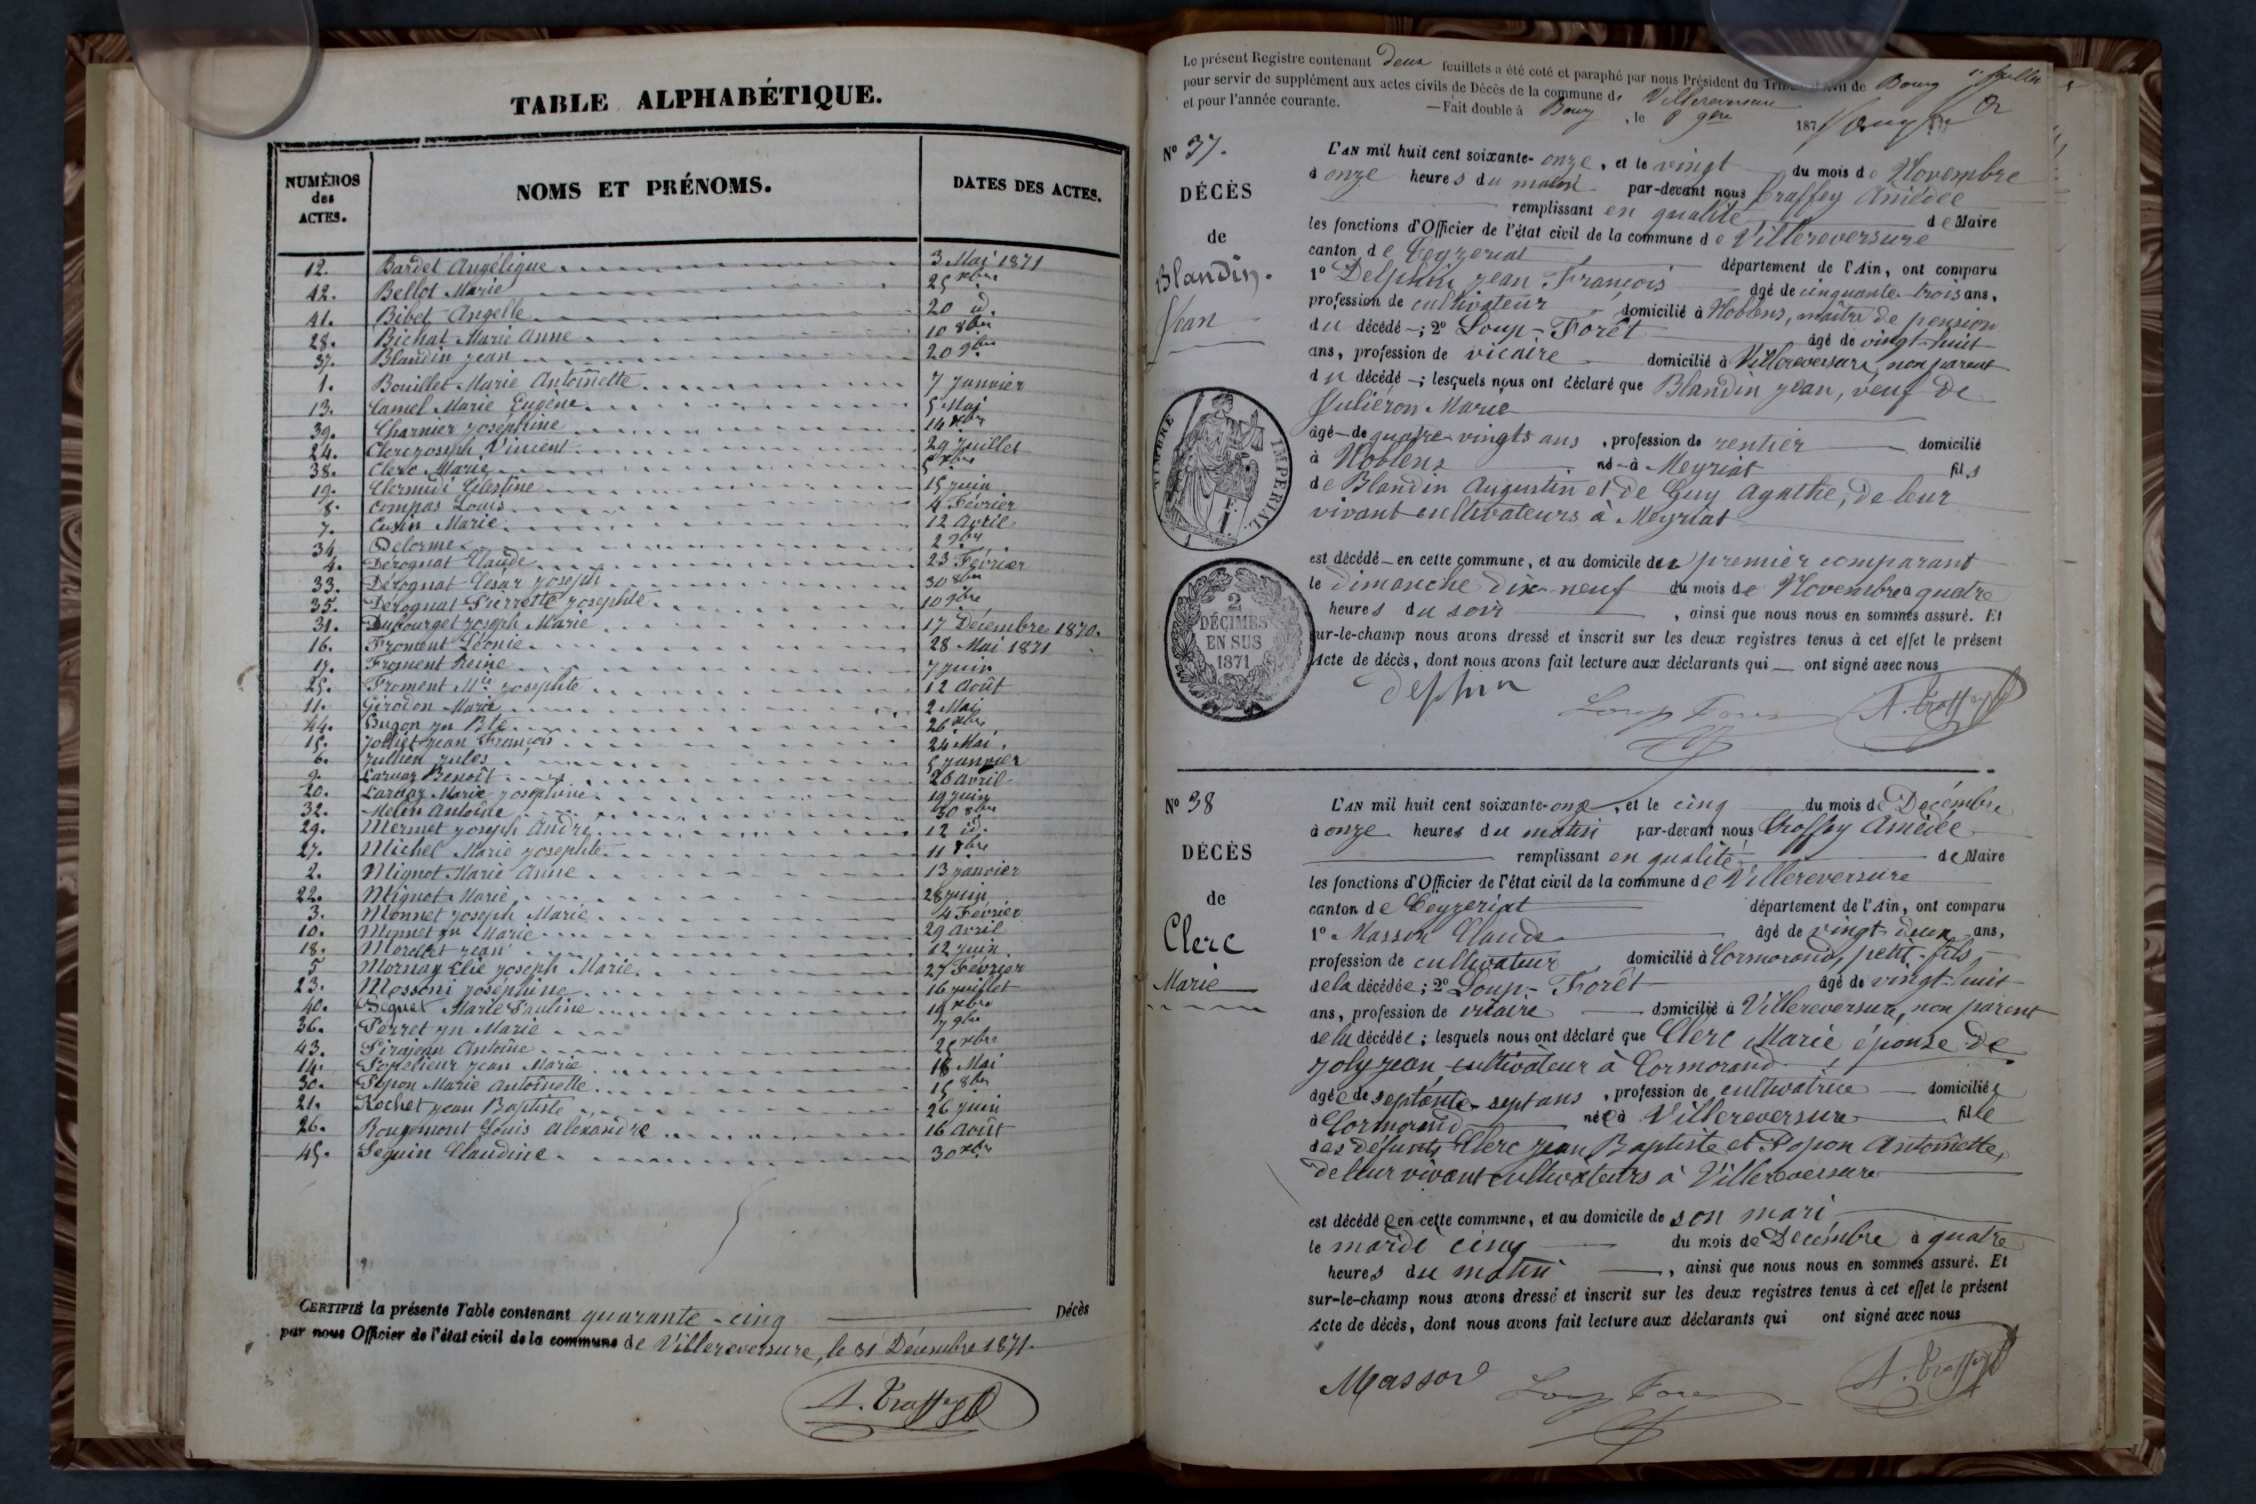 TABLE ALPHABÉTIQUE.
NUMÉROS des ACTES. NOMS ET PRÉNOMS. DATES DES ACTES.
12. Bardet Angélique 3 Mai 1871
42. Bellot Marie 25 xbre
41. Bibet Angelle 20 id.
28. Bichat Marie Anne 10 8bre
37. Blandin Jean 20 9bre
1. Bouillet Marie Antoinette 7 Janvier
13. Camel Marie Eugène 5 Mai
39. Charnier Joséphine 14 xbre
24. Clerc Joseph Vincent 29 Juillet
38. Clerc Marie 5 xbre
19. Clermidi Célestine 15 Juin
8. Compas Louis 4 Février
7. Cusin Marie 12 Avril
34. Delorme 2 9bre
4. Derognat Claude 23 Février
33. Derognat César Joseph 30 8bre
35. Derognat Pierrette Josephte 10 9bre
31. Dubourget Joseph Marie 17 Décembre 1870.
16. Froment Léonie 28 Mai 1871
17. Froment Reine 7 Juin
25. Froment Mie Josephte 12 Août
11. Girodon Marie 2 Mai
44. Gugon Jn Bte 26 xbre
15. Jolliet Jean François 24 Mai.
6. Jullien Jules 5 Janvier
9. Larvaz Benoît 26 Avril
20. Larvaz Marie Joséphine 19 Juin
32. Melin Antoine 30 8bre
29. Mermet Joseph André 12 id.
27. Michel Marie Josephte 11 8bre
2. Mignot Marie Anne 13 Janvier
22. Mignot Marie 28 Juin
3. Monnet Joseph Marie 4 Février
10. Monnet Jn Marie 29 Avril
18. Morellet Jean 12 Juin
5 Mornay Elie Joseph Marie 27 Février
23. Mossoni Joséphine 16 Juillet
40. Péquet Marie Pauline 19 xbre
36. Perret Jn Marie 7 9bre
43. Pirajean Antoine 25 xbre
14. Popelieur Jean Marie 18 Mai
30. Popon Marie Antoinette 15 8bre
21. Rochet Jean Baptiste 26 Juin
26. Rougemont Louis Alexandre 16 Août
45. Seguin Claudine 30 xbre
CERTIFIÉ la présente Table contenant quarante-cinq Décès
par nous Officier de l'état civil de la commune de Villereversure, le 31 Décembre 1871.
A. Traffey
Le présent Registre contenant deux feuillets a été coté et paraphé par nous Président du Tribunal civil de Bourg
pour servir de supplément aux actes civils de Décès de la commune de Villereversure
et pour l'année courante. —Fait double à Bourg, le 8 9bre 187
N° 37.
DÉCÈS
de
Blandin.
Jean
L'AN mil huit cent soixante-onze, et le vingt du mois de Novembre
à onze heures du matin par-devant nous Traffey Amédée
remplissant en qualité de Maire
les fonctions d'Officier de l'état civil de la commune de Villereversure
canton de Ceyzeriat département de l'Ain, ont comparu
1° Delphin Jean François âgé de cinquante-trois ans,
profession de cultivateur domicilié à Noblens, maître de pension
du décédé; 2° Loup-Forêt âgé de vingt-huit
ans, profession de vicaire domicilié à Villereversure, non parent
du décédé; lesquels nous ont déclaré que Blandin Jean, veuf de
Juliéron Marie
âgé de quatre-vingts ans, profession de rentier domicilié
à Noblens né à Meyriat fils
de Blandin Augustin et de Guy Agathe, de leur
vivant cultivateurs à Meyriat
est décédé en cette commune, et au domicile des premier comparant
le dimanche dix-neuf du mois de Novembre à quatre
heures du soir, ainsi que nous nous en sommes assuré. Et
sur-le-champ nous avons dressé et inscrit sur les deux registres tenus à cet effet le présent
Acte de décès, dont nous avons fait lecture aux déclarants qui ont signé avec nous
TIMBRE IMPÉRIAL.
2 DÉCIMES EN SUS 1871
delphin Loup Forest A. Traffey
N° 38
DÉCÈS
de
Clerc
Marie
L'AN mil huit cent soixante-onze, et le cinq du mois de Décembre
à onze heures du matin par-devant nous Traffey Amédée
remplissant en qualité de Maire
les fonctions d'Officier de l'état civil de la commune de Villereversure
canton de Ceyzeriat département de l'Ain, ont comparu
1° Masson Claude âgé de vingt-deux ans,
profession de cultivateur domicilié à Cormorand, petit-fils
de la décédée; 2° Loup-Forêt âgé de vingt-huit
ans, profession de vicaire domicilié à Villereversure, non parent
de la décédée; lesquels nous ont déclaré que Clerc Marie épouse de
Joly Jean cultivateur à Cormorand
âgée de septante-sept ans, profession de cultivatrice domiciliée
à Cormorand née à Villereversure fille
des défunts Clerc Jean Baptiste et Popon Antoinette,
de leur vivant cultivateurs à Villereversure
est décédée en cette commune, et au domicile de son mari
le mardi cinq du mois de Décembre à quatre
heures du matin, ainsi que nous nous en sommes assuré. Et
sur-le-champ nous avons dressé et inscrit sur les deux registres tenus à cet effet le présent
Acte de décès, dont nous avons fait lecture aux déclarants qui ont signé avec nous
Masson Loup Forest A. Traffey